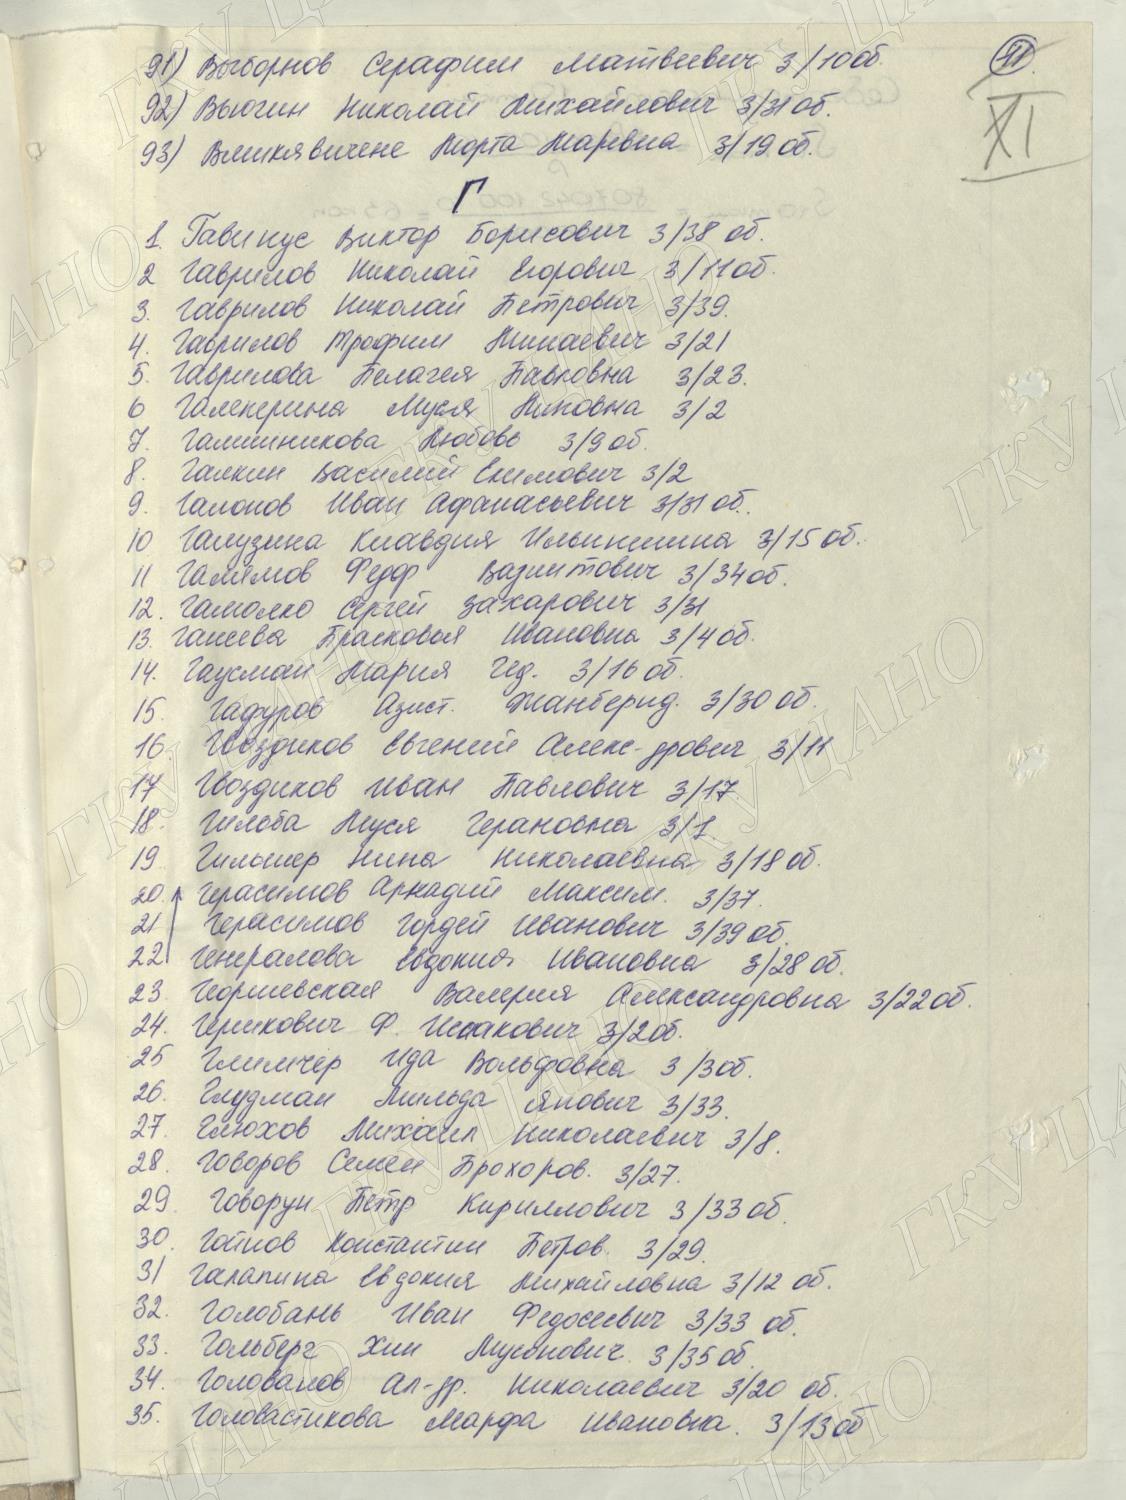 11
XI
91) Выборнов Серафим Матвеевич 3/10об.
92) Вьюгин Николай Михайлович 3/31 об.
93) Вмикявичене Морта Маревна 3/19 об.
Г
1. Гавинус Виктор Борисович 3/38 об.
2 Гаврилов Николай Егорович 3/11об.
3. Гаврилов Николай Петрович 3/39.
4. Гаврилов Трофим Минаевич 3/21
5. Гаврилова Пелагея Павловна 3/23.
6 Галекерина Муся 3/2
7. Галишникова Любовь 3/9 об.
8. Галкин Василий Екимович 3/2
9. Галонов Иван Афанасьевич 3/31 об.
10 Галузина Клавдия Ильинишна 3/15 об.
11 Галямов Федф Вазиитович 3/34об.
12. Гамолко Сергей Захарович 3/31
13. Ганеева Прасковья Ивановна 3/4 об.
14. Гаусман Мария Гед. 3/16 об.
15. Гадуров Азист. Жанберид. 3/30 об.
16. Гвоздиков Евгений Алекс-дрович 3/11
17 Гвоздиков Иван Павлович 3/17
18. Гилоба Муся Герановна 3/1
19 Гильшер Нина Николаевна 3/18 об.
20. Герасимов Аркадий Максим. 3/37.
21 Герасимов Гордей Иванович 3/39 об.
22 Генералова Евдокия Ивановна 3/28 об.
23. Георгиевская Валерия Александровна 3/22 об.
24. Герикович Ф. Исакович 3/2об.
25 Глимчер Ида Вольфовна 3/3об.
26. Глудман Мильда Янович 3/33.
27. Глюхов Михаил Николаевич 3/8.
28. Говоров Семен Прохоров. 3/27.
29. Говорун Петр Кириллович 3/33 об.
30. Гойнов Константин Петров. 3/29.
31 Галапина Евдокия Михайловна 3/12 об.
32. Голобань Иван Федосеевич 3/33 об.
33. Гольберг Хин Мусонович. 3/35 об.
34. Голованов Ал-др. Николаевич 3/20 об.
35. Головастикова Марфа Ивановна. 3/13 об
ГКУ ЦАНО